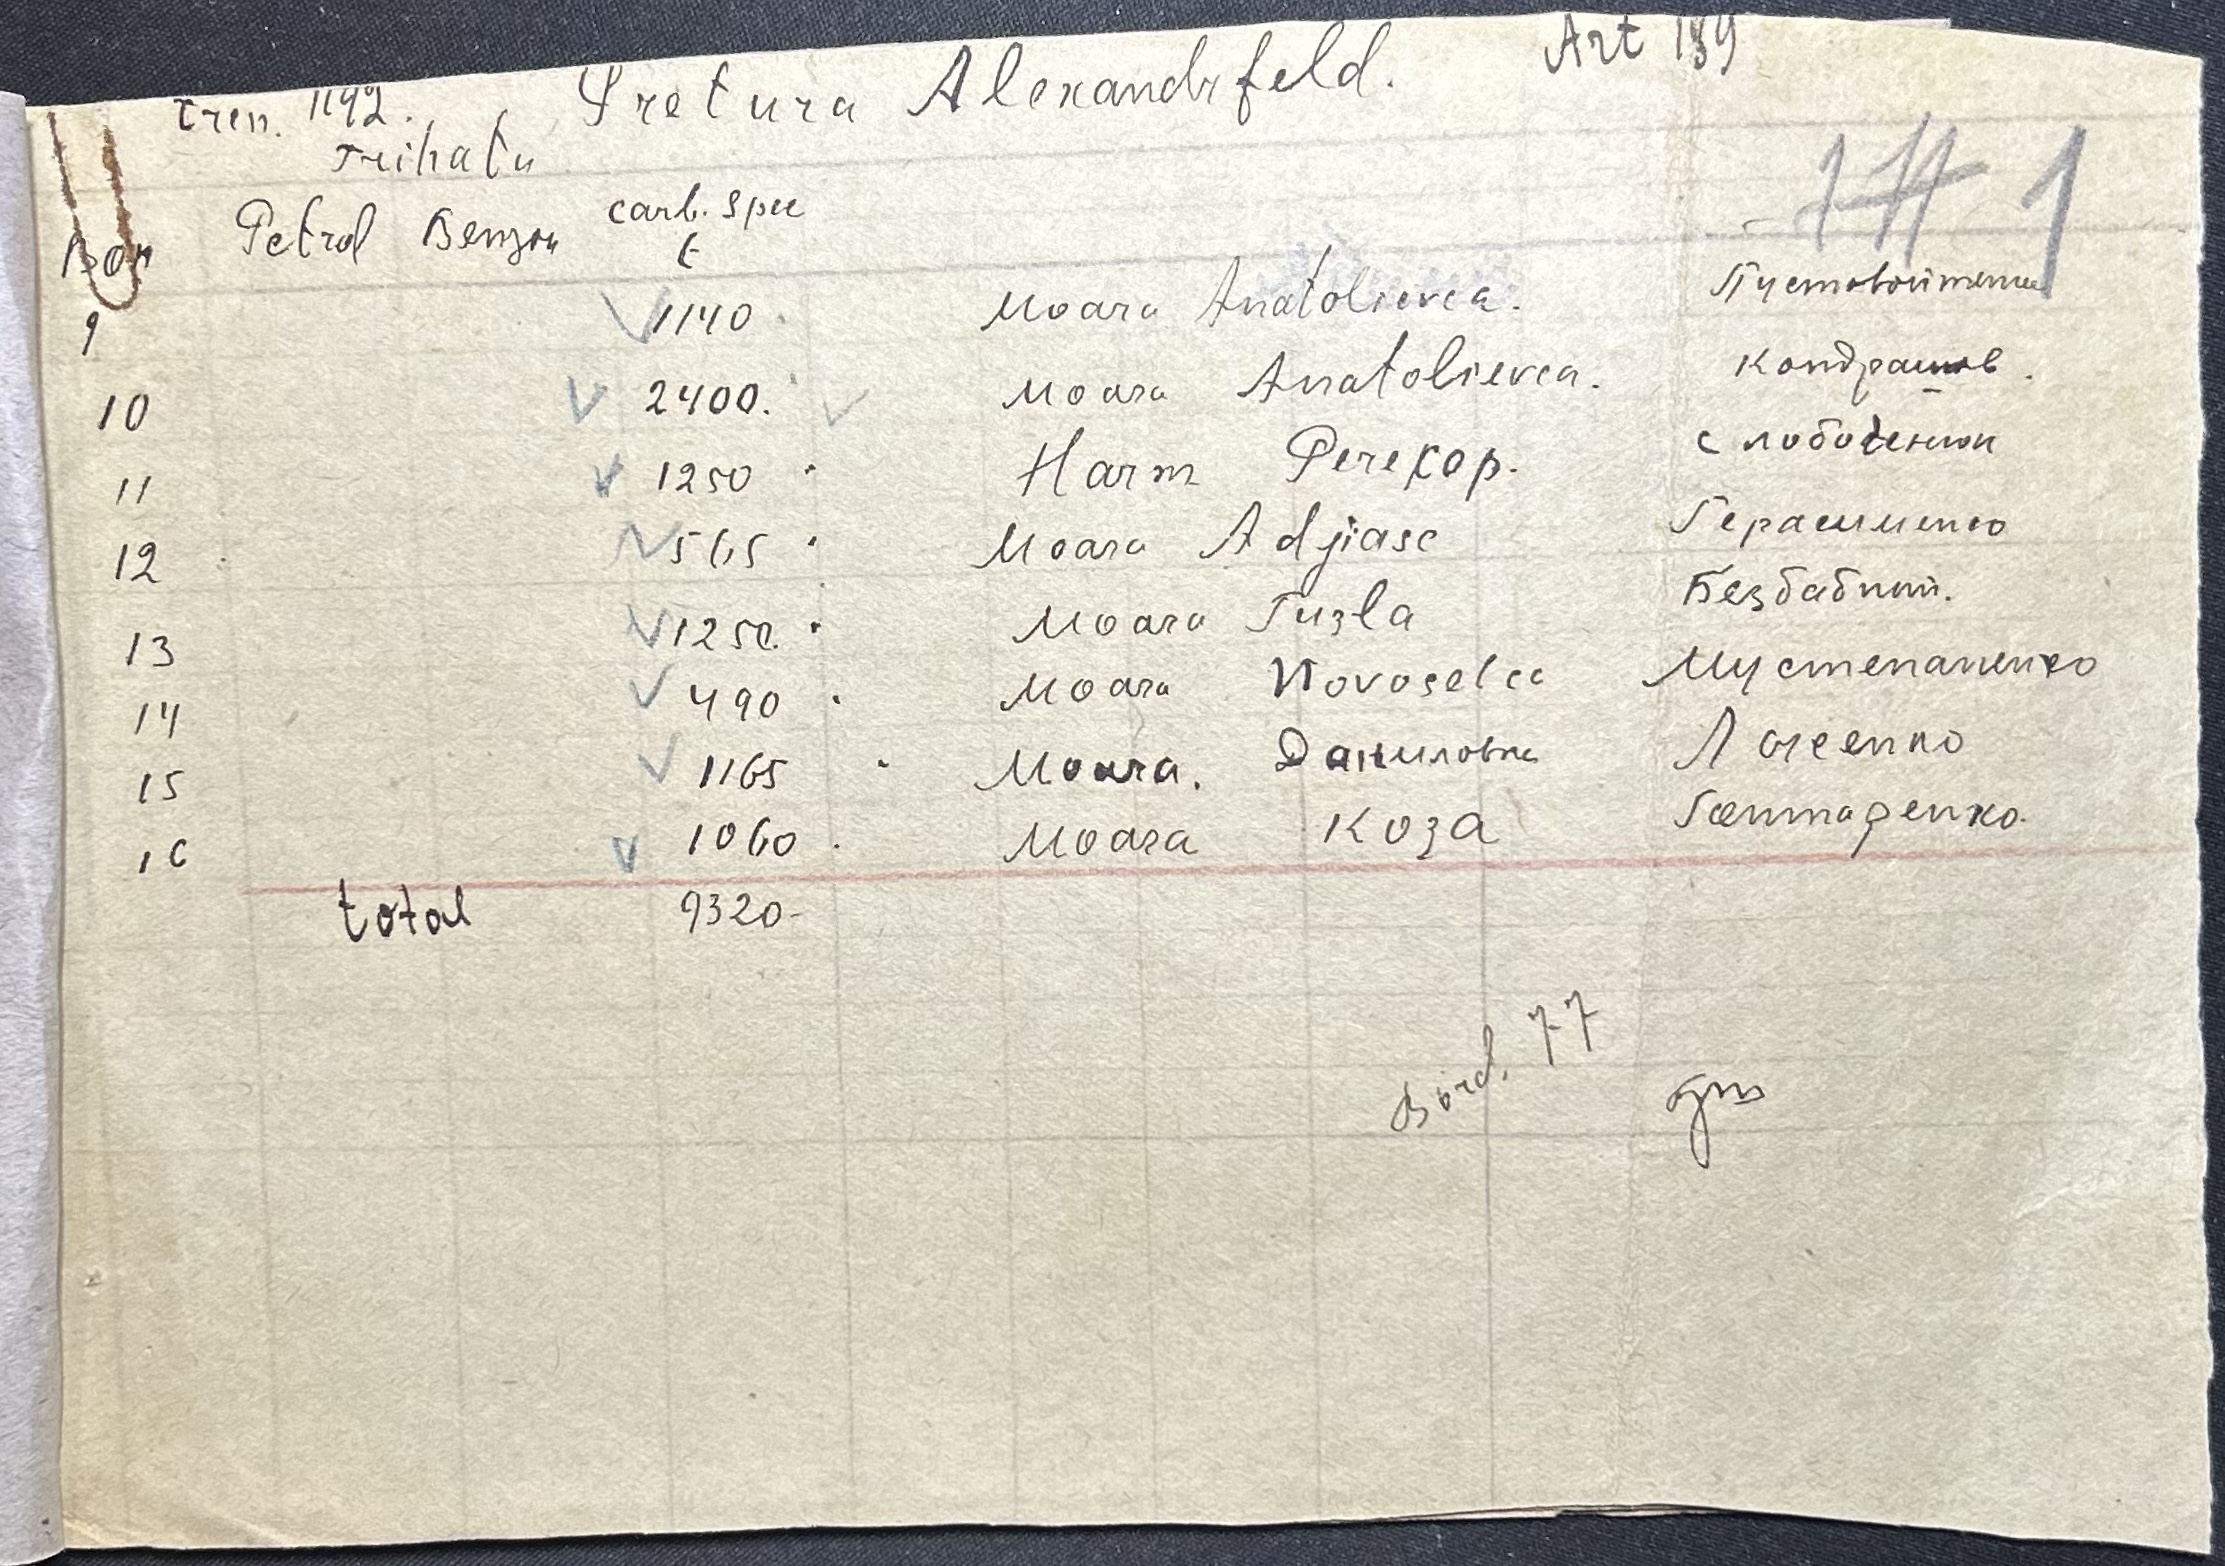 Art 139
Pretura Alexandrfeld.
tren. 1192.
Trihatu
1
Bon Petrol Benzin carb. spec
t
9 1140 Moara Anatolievca. Пустовойтенко
10 2400. Moara Anatolievca. Кондрашов.
11 1250 Harm Perekop. Слободенюк
12 565 Moara Adjiasc Герасименко
13 1250. Moara Tuzla Безбабний.
14 490 Moara Novoselca Мустепаненко
15 1165 Moara. Даниловка
16 1060 Moara Коза
total 9320-
Bord. 77